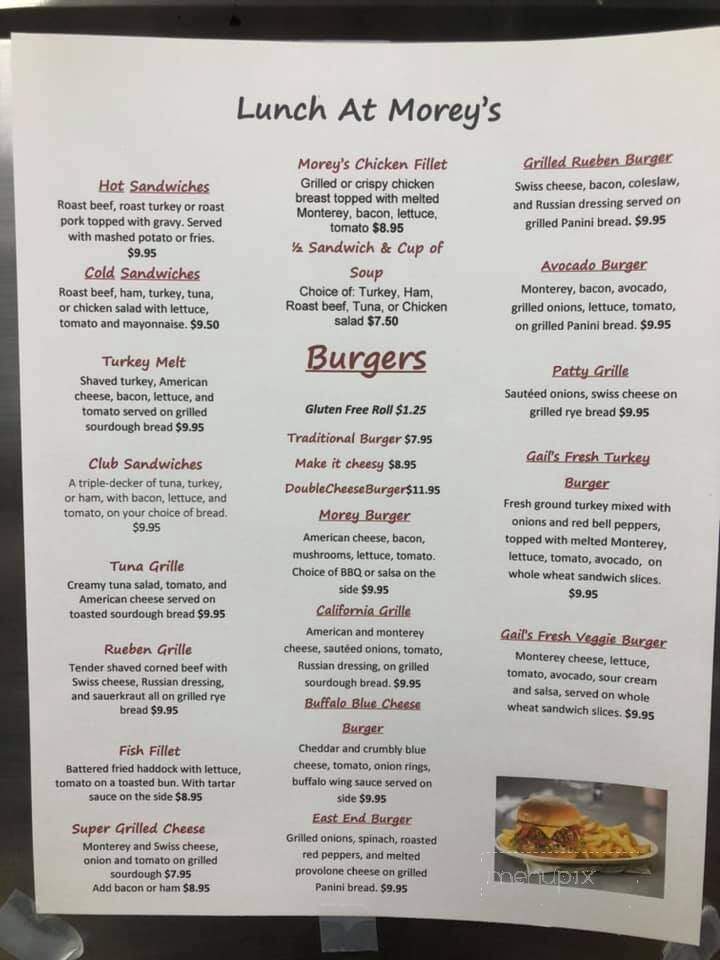 Lunch At Morey's
Hot Sandwiches
Roast beef, roast turkey or roast
pork topped with gravy. Served
with mashed potato or fries.
$9.95
Cold Sandwiches
Roast beef, ham, turkey, tuna,
or chicken salad with lettuce,
tomato and mayonnaise. $9.50
Turkey Melt
Shaved turkey, American
cheese, bacon, lettuce, and
tomato served on grilled
sourdough bread $9.95
Club Sandwiches
A triple-decker of tuna, turkey,
or ham, with bacon, lettuce, and
tomato, on your choice of bread.
$9.95
Tuna Grille
Creamy tuna salad, tomato, and
American cheese served on
toasted sourdough bread $9.95
Rueben Grille
Tender shaved corned beef with
Swiss cheese, Russian dressing,
and sauerkraut all on grilled rye
bread $9.95
Fish Fillet
Battered fried haddock with lettuce,
tomato on a toasted bun. With tartar
sauce on the side $8.95
Super Grilled Cheese
Monterey and Swiss cheese,
onion and tomato on grilled
sourdough $7.95
Add bacon or ham $8.95
Morey's Chicken Fillet
Grilled or crispy chicken
breast topped with melted
Monterey, bacon, lettuce,
tomato $8.95
½ Sandwich & Cup of
Soup
Choice of: Turkey, Ham,
Roast beef, Tuna, or Chicken
salad $7.50
Burgers
Gluten Free Roll $1.25
Traditional Burger $7.95
Make it cheesy $8.95
DoubleCheeseBurger$11.95
Morey Burger
American cheese, bacon,
mushrooms, lettuce, tomato.
Choice of BBQ or salsa on the
side $9.95
California Grille
American and monterey
cheese, sautéed onions, tomato,
Russian dressing, on grilled
sourdough bread. $9.95
Buffalo Blue Cheese
Burger
Cheddar and crumbly blue
cheese, tomato, onion rings,
buffalo wing sauce served on
side $9.95
East End Burger
Grilled onions, spinach, roasted
red peppers, and melted
provolone cheese on grilled
Panini bread. $9.95
Grilled Rueben Burger
Swiss cheese, bacon, coleslaw,
and Russian dressing served on
grilled Panini bread. $9.95
Avocado Burger
Monterey, bacon, avocado,
grilled onions, lettuce, tomato,
on grilled Panini bread. $9.95
Patty Grille
Sautéed onions, swiss cheese on
grilled rye bread $9.95
Gail's Fresh Turkey
Burger
Fresh ground turkey mixed with
onions and red bell peppers,
topped with melted Monterey,
lettuce, tomato, avocado, on
whole wheat sandwich slices.
$9.95
Gail's Fresh Veggie Burger
Monterey cheese, lettuce,
tomato, avocado, sour cream
and salsa, served on whole
wheat sandwich slices. $9.95
menupix